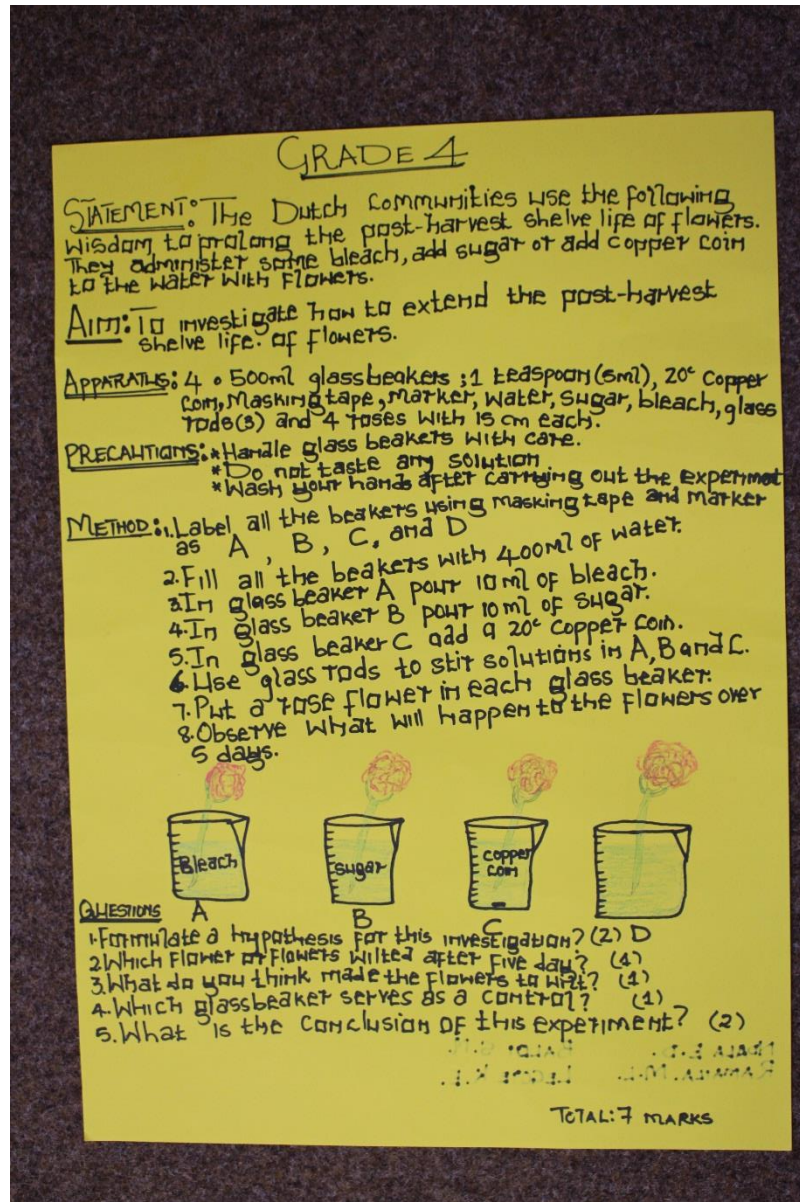 GRADE 4
STATEMENT: The Dutch Communities use the following
wisdom to prolong the post-harvest shelve life of flowers.
They administer some bleach, add sugar or add copper coin
to the water with Flowers.
Aim: To investigate how to extend the post-harvest
shelve life. of flowers.
APPARATUS: 4 • 500ml glassbeakers ; 1 teaspoon (5ml), 20c Copper
Coin, Masking tape, Marker, Water, Sugar, bleach, glass
rods(3) and 4 roses with 15 cm each.
PRECAUTIONS: *Handle glass beakers with care.
*Do not taste any solution
*Wash your hands after carrying out the experimet
METHOD: 1. Label all the beakers using masking tape and marker
as A, B, C, and D
2. Fill all the beakers with 400ml of water.
3. In glass beaker A pour 10 ml of bleach.
4. In glass beaker B pour 10 ml of sugar.
5. In glass beaker C add a 20c Copper Coin.
6. Use glass rods to stir solutions in A, B and C.
7. Put a rose flower in each glass beaker.
8. Observe What will happen to the flowers over
5 days.
Bleach
sugar
copper
coin
A
B
C
D
QUESTIONS
1. Formulate a hypothesis for this investigation? (2)
2. Which Flower or Flowers wilted after five day? (1)
3. What do you think made the flowers to wilt? (1)
4. Which glassbeaker serves as a control? (1)
5. What is the Conclusion of this experiment? (2)
TOTAL: 7 MARKS